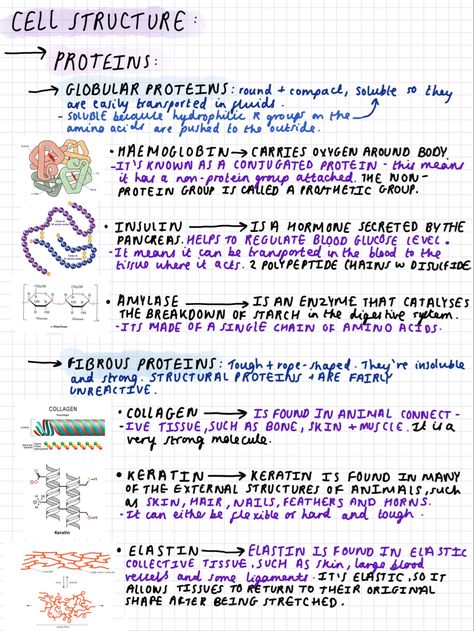 CELL STRUCTURE:
→ PROTEINS:
→ GLOBULAR PROTEINS: round + compact, soluble so they
are easily transported in fluids.
- SOLUBLE because hydrophilic R groups on the
amino acids are pushed to the outside.
• HAEMOGLOBIN → CARRIES OXYGEN AROUND BODY
- IT'S KNOWN AS A CONJUGATED PROTEIN - this means
it has a non-protein group attached. THE NON-
PROTEIN GROUP IS CALLED A PROSTHETIC GROUP.
• INSULIN → IS A HORMONE SECRETED BY THE
PANCREAS. HELPS TO REGULATE BLOOD GLUCOSE LEVEL.
- It means it can be transported in the blood to the
tissue where it acts. 2 POLYPEPTIDE CHAINS W DISULFIDE.
• AMYLASE → IS AN ENZYME THAT CATALYSES
THE BREAKDOWN OF STARCH in the digestive system.
- ITS MADE OF A SINGLE CHAIN OF AMINO ACIDS.
α-Amylase
→ FIBROUS PROTEINS: Tough + rope-shaped. They're insoluble
and strong. STRUCTURAL PROTEINS + ARE FAIRLY
UNREACTIVE.
COLLAGEN
• COLLAGEN → IS FOUND IN ANIMAL CONNECT-
IVE TISSUE, SUCH AS BONE, SKIN + MUSCLE. It is a
very strong molecule.
• KERATIN → KERATIN IS FOUND IN MANY
OF THE EXTERNAL STRUCTURES OF ANIMALS, such
as SKIN, HAIR, NAILS, FEATHERS AND HORNS.
- It can either be flexible or hard and tough.
Keratin
• ELASTIN → ELASTIN IS FOUND IN ELASTIC
COLLECTIVE TISSUE, SUCH AS skin, large blood
vessels and some ligaments. IT'S ELASTIC, SO IT
ALLOWS TISSUES TO RETURN TO THEIR ORIGINAL
SHAPE AFTER BEING STRETCHED.